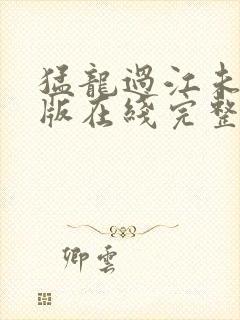 猛龍過江未
版在綫完整
卿雲